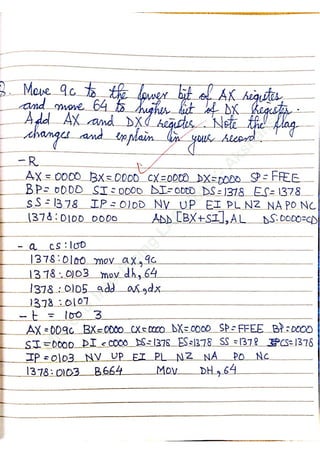 Move 9c to the lower bit of AX registes
and move 64 to higher bit of DX Register.
Add AX and DX register. Note the flag
changes and explain in your record.
-R
AX=0000 BX=0000 CX=0000 DX=0000 SP=FFEE
BP=0000 SI=0000 DI=0000 DS=1378 ES=1378
SS=1378 IP=0100 NV UP EI PL NZ NA PO NC
1378:0100 0000 ADD [BX+SI],AL DS:0000=CD
- a cs:100
1378:0100 mov ax,9c
1378:0103 mov dh,64
1378:0105 add ax,dx
1378:0107
-t = 100 3
AX=009C BX=0000 CX=0000 DX=0000 SP=FFEE BP=0000
SI=0000 DI=0000 DS=1378 ES=1378 SS=1378 CS=1378
IP=0103 NV UP EI PL NZ NA PO NC
1378:0103 B664 MOV DH,64